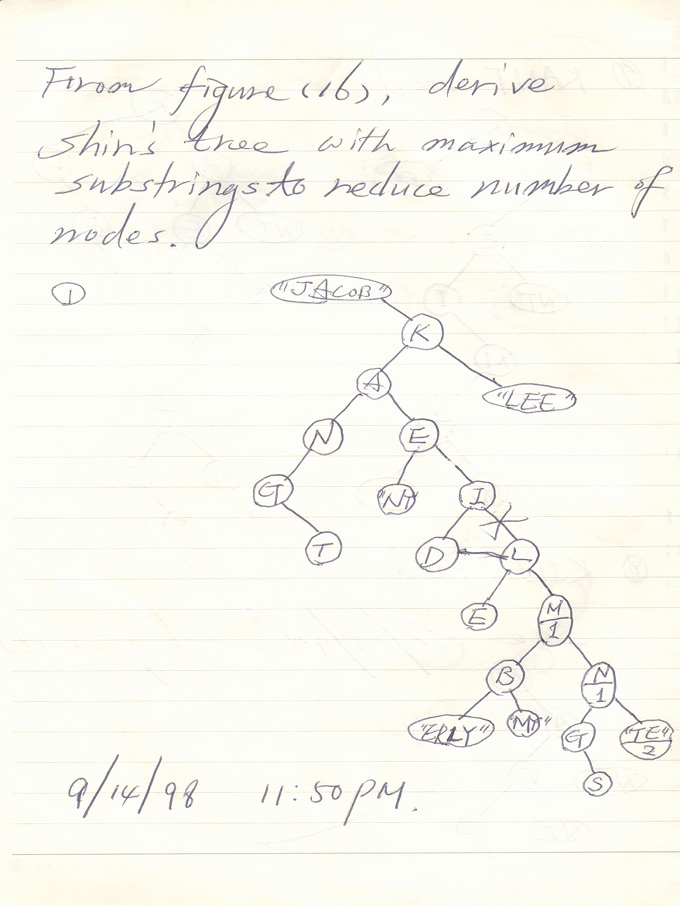 From figure (16), derive
Shin's tree with maximum
substrings to reduce number of
nodes.
①
"JACOB"
K
A
"LEE"
N
E
G
"NY
I
T
D
L
E
M
1
B
N
1
"ERLY"
"MY"
G
"TE"
2
S
9/14/98 11:50PM.